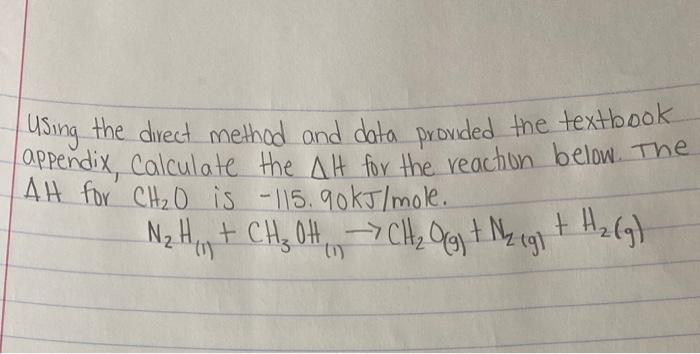 Using the direct method and data provided the textbook
appendix, Calculate the ΔH for the reaction below. The
ΔH for CH₂O is -115.90kJ/mole.
N₂H₍ₗ₎ + CH₃OH₍ₗ₎ → CH₂O(g) + N₂(g) + H₂(g)